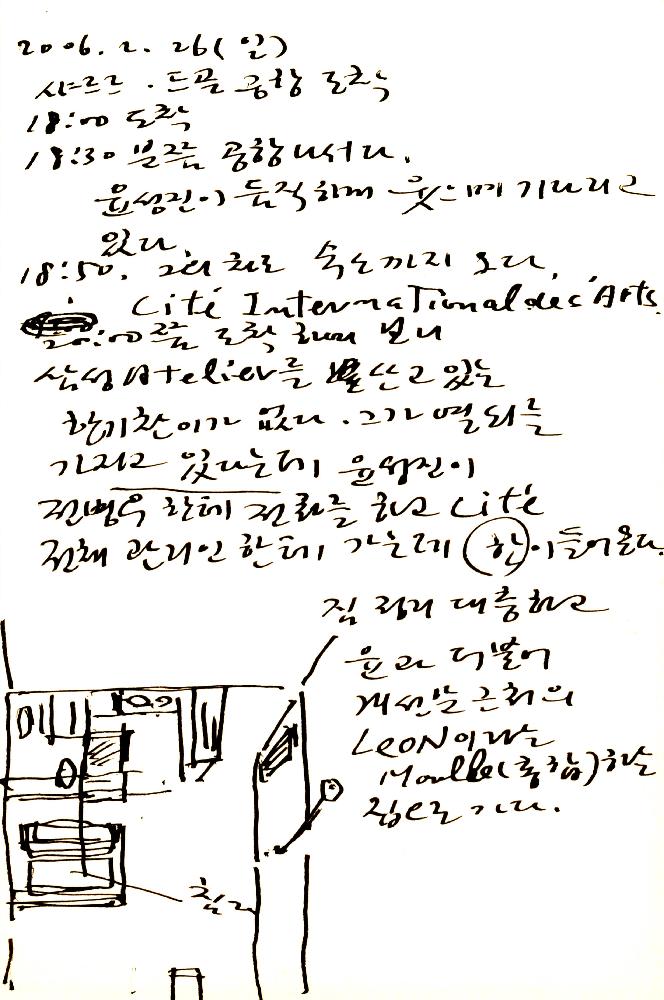 2006. 2. 26(일)
샤르르 · 드골 공항 도착
18:00 도착
18:30 분쯤 공항 나서다.
윤성진이 듬직하게 웃으며 기다리고
있다.
18:50. 그의 차로 숙소까지 오다.
Cité International des Arts.
20:00쯤 도착해 보니
삼성 Atelier를 쓰고 있는
한기찬이가 없다. 그가 열쇠를
가지고 있다는데 윤성진이
전병욱 한테 전화를 하고 Cité
전체 관리인 한테 가는데 한이 들어온다.
짐 정리 대충하고
윤과 더불어
개선문 근처의
LeoN이라는
Moulle(홍합)하는
집으로 가다.
침대